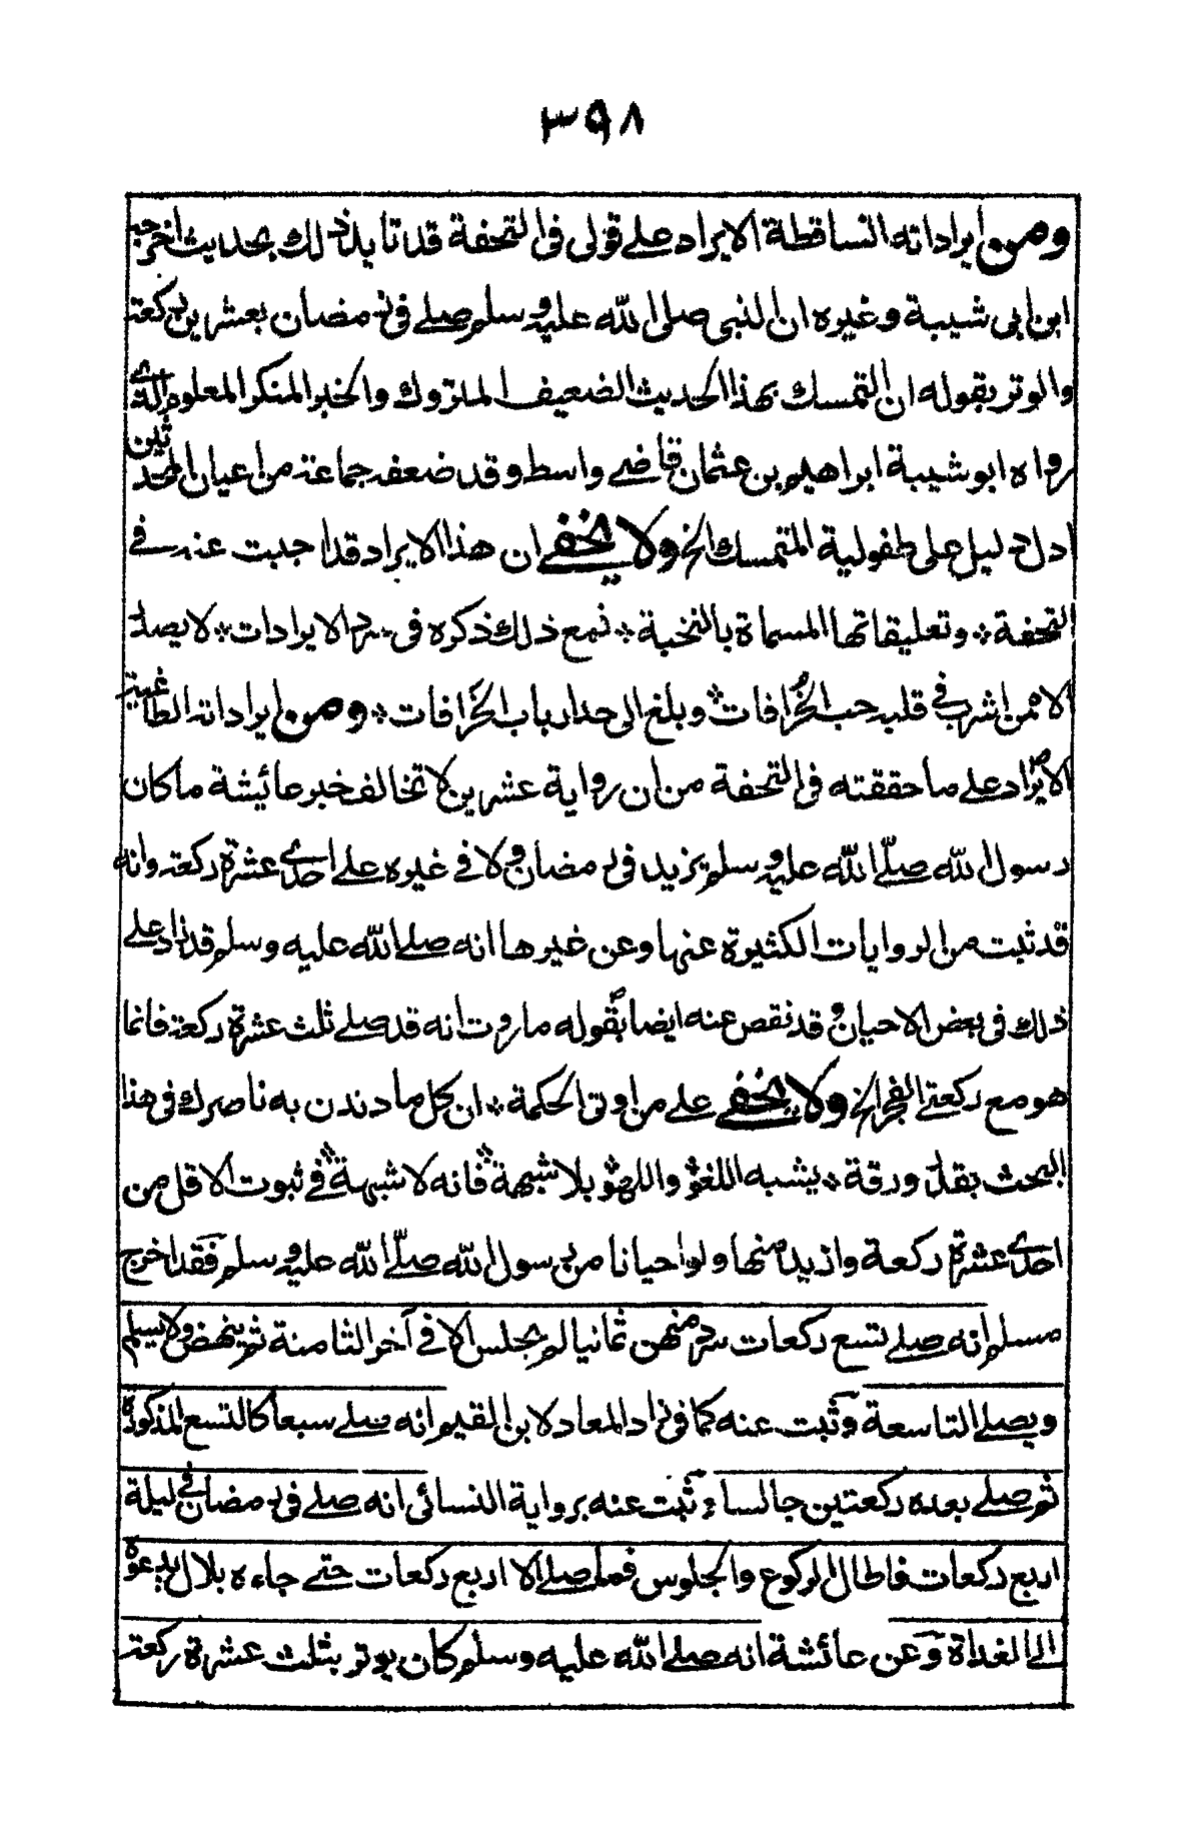 ٣٩٨
ومن ايراداته الساقطة الايراد على قولى فى التحفة قد تايد ذلك بحديث اخرجه
ابن ابى شيبة وغيره ان النبى صلى الله عليه وسلم صلے فى رمضان بعشرين ركعة
والوتر بقوله ان التمسك بهذا الحديث الضعيف المتروك والخبر المنكر المعلوم الذے
رواه ابو شيبة ابراهيم بن عثمان قاضے واسط وقد ضعفه جماعة من اعيان المحدثين
ادل دليل على طفولية المتمسك الخ ولا يخفے ان هذا الايراد قد اجبت عنه فے
التحفة * وتعليقاتها المسماة بالنخبة * فمع ذلك ذكره فى سرد الايرادات * لا يصدر
الا ممن اشرب فے قلبه حب الخُرافات * وبلغ الى حد ارباب الخَرافات * ومن ايراداته الطاغية
الايراد على ما حققته فى التحفة من ان رواية عشرين لا تخالف خبر عائيشة ما كان
رسول الله صلّے الله عليه وسلم يزيد فى رمضان ولا فے غيره على احدے عشرة ركعة وانه
قد ثبت من الروايات الكثيرة عنها وعن غيرها انه صلے الله عليه وسلم قد زاد على
ذلك فى بعض الاحيان وقد نقص عنه ايضا بقوله ما روت انه قد صلے ثلث عشرة ركعة فانما
هو مع ركعتے الفجر الخ ولا يخفے على من اوتى الحكمة * ان كل ما دندن به ناصرك فى هذا
البحث بقدر ورقة * يشبه اللغو واللهو بلا شبهة * فانه لا شبهة فے ثبوت الاقل من
احدے عشرة ركعة وازيد منها ولو احيانا من رسول الله صلّے الله عليه وسلم فقد اخرج
مسلم انه صلے تسع ركعات سرد منهن ثمانيا لم يجلس الا فے آخر الثامنة ثم ينهض ولا يسلم
ويصلے التاسعة وثبت عنه كما فى زاد المعاد لابن القيم انه صلے سبعا كالتسع المذكورة
ثم صلے بعده ركعتين جالسا وثبت عنه برواية النسائى انه صلے فى رمضان فے ليلة
اربع ركعات فاطال الركوع والجلوس فما صلے الا اربع ركعات حتے جاءه بلال يدعوه
الى الغداة وعن عائشة انه صلے الله عليه وسلم كان يوتر بثلث عشرة ركعة